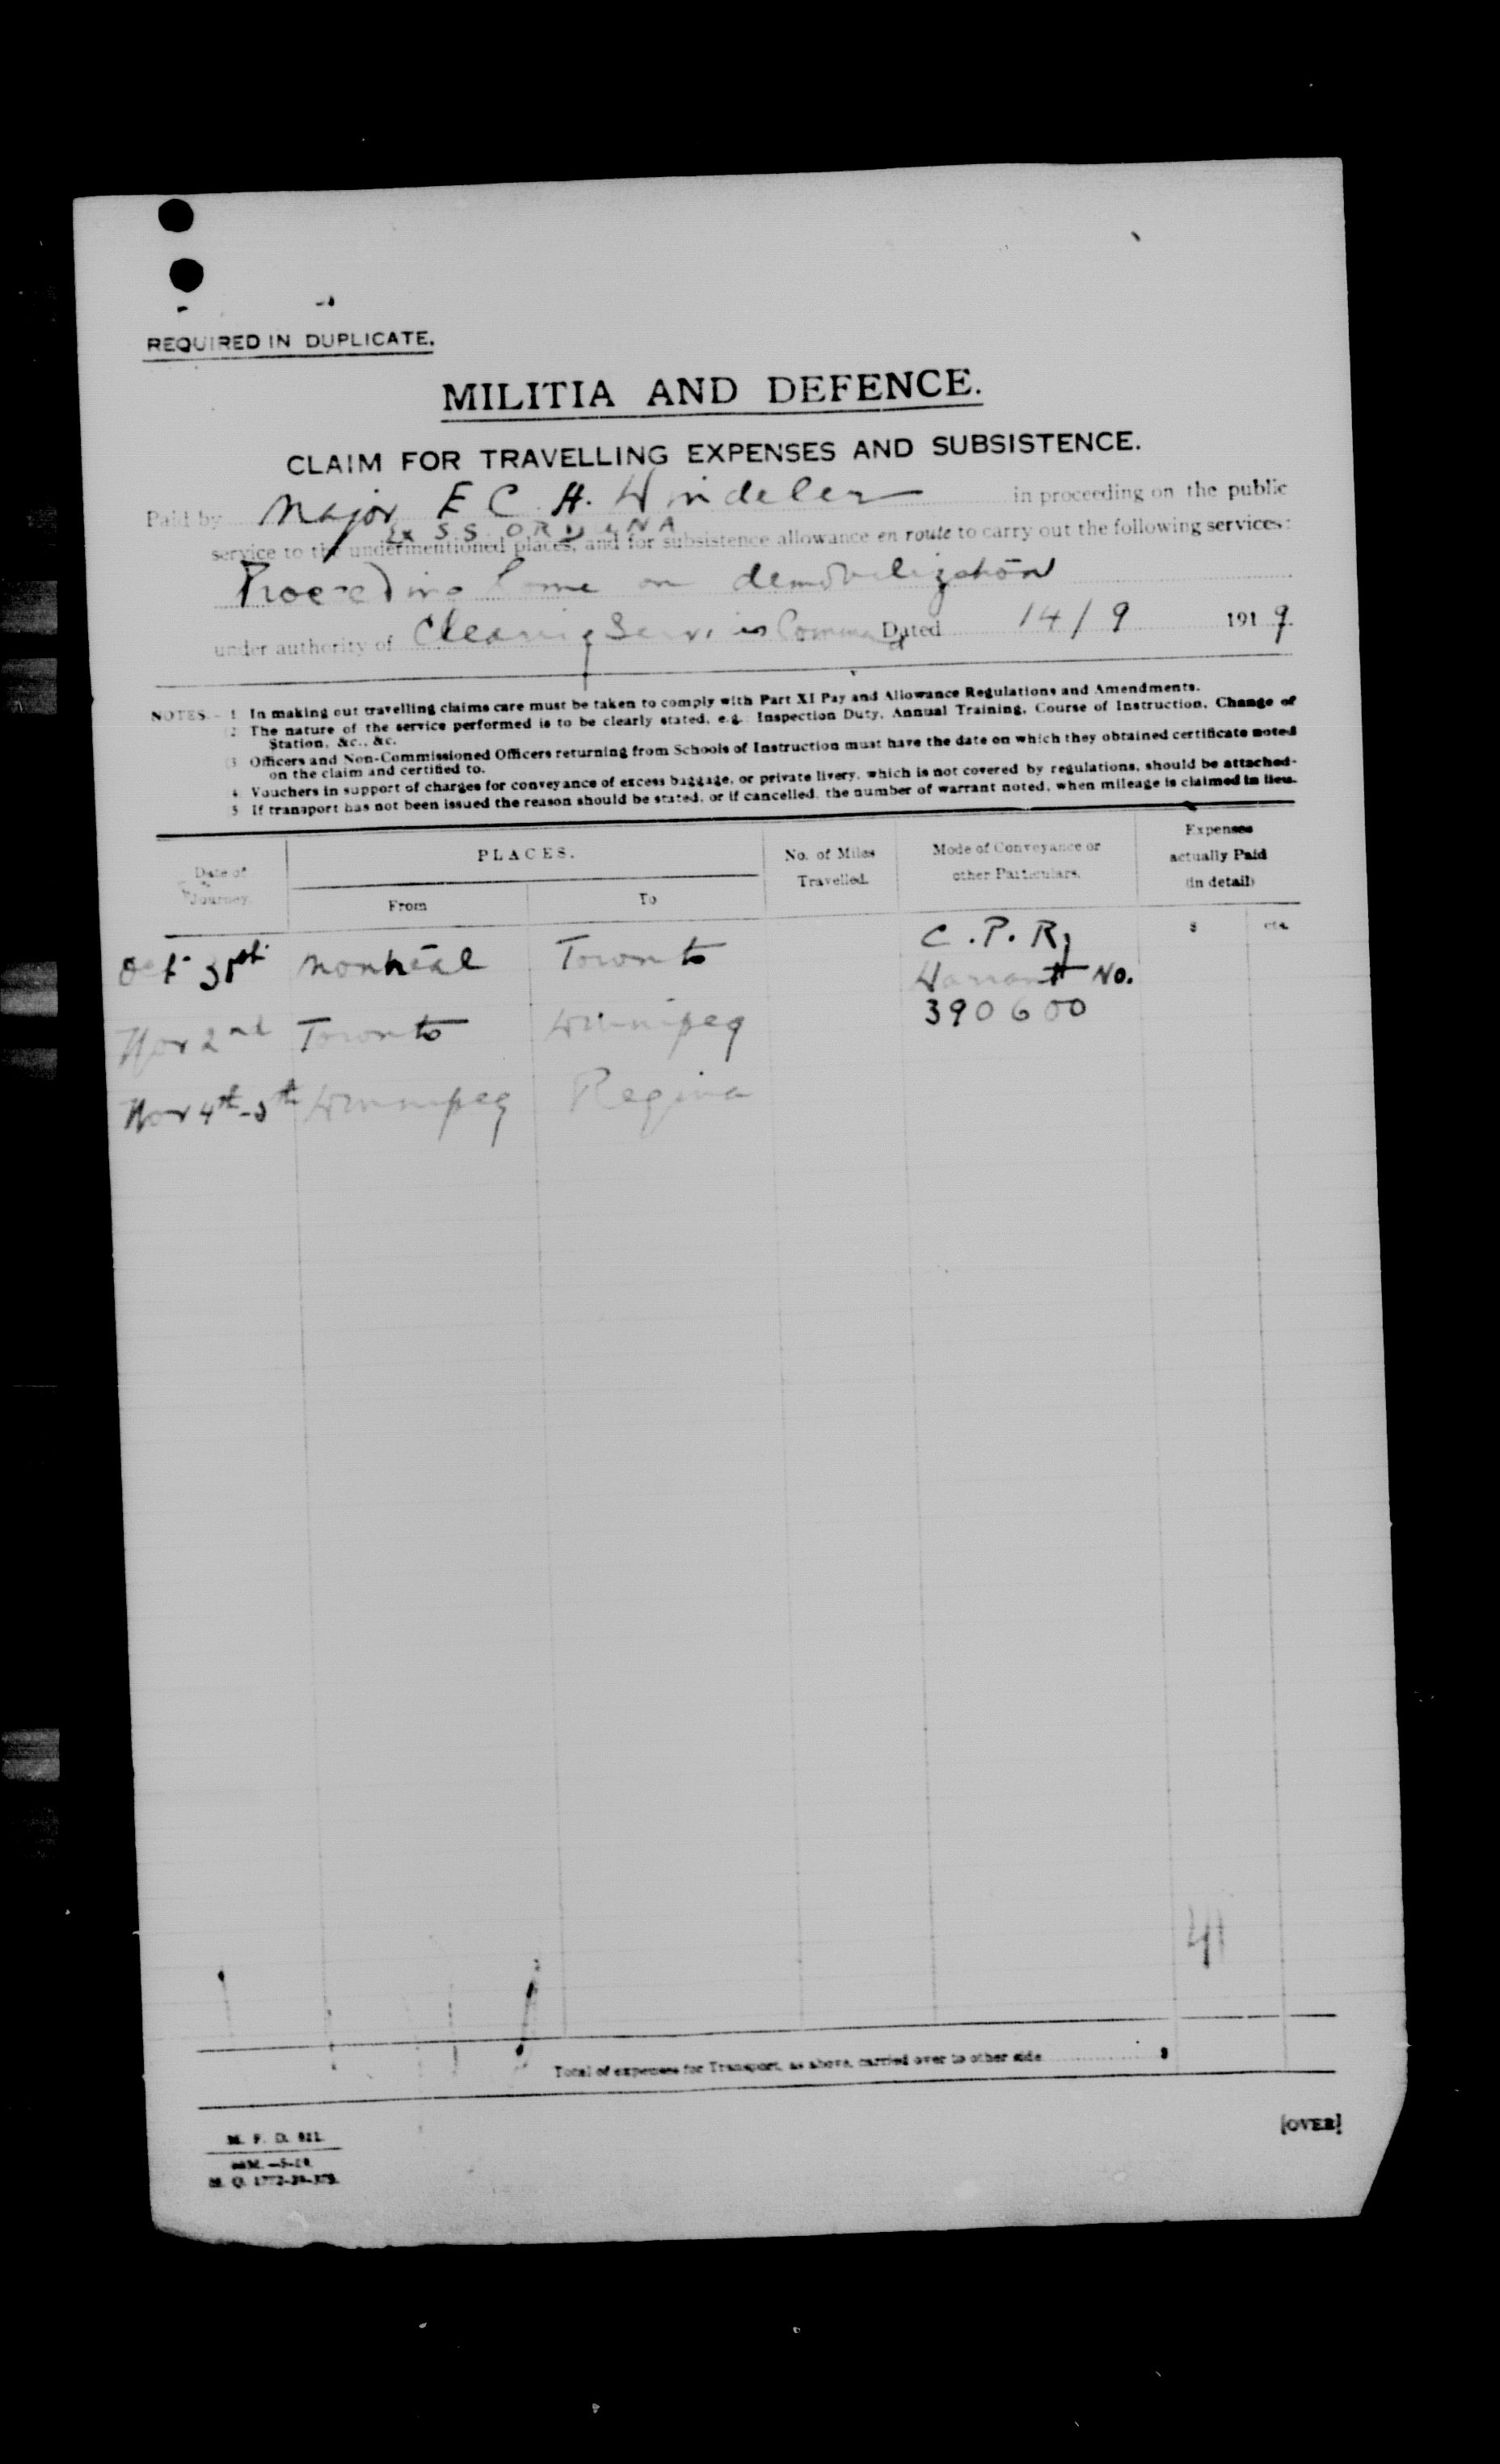 REQUIRED IN DUPLICATE.
MILITIA AND DEFENCE.
CLAIM FOR TRAVELLING EXPENSES AND SUBSISTENCE.
Paid by Major E C H. Windeler in proceeding on the public
Ex SS ORDUNA
service to the undermentioned places, and for subsistence allowance en route to carry out the following services:
Proceeding home on demobilization
under authority of Clearing Services Command Dated 14/9 1919.
NOTES.- 1 In making out travelling claims care must be taken to comply with Part XI Pay and Allowance Regulations and Amendments.
2 The nature of the service performed is to be clearly stated, e.g. Inspection Duty, Annual Training, Course of Instruction, Change of
Station, &c., &c.
3 Officers and Non-Commissioned Officers returning from Schools of Instruction must have the date on which they obtained certificate noted
on the claim and certified to.
4 Vouchers in support of charges for conveyance of excess baggage, or private livery, which is not covered by regulations, should be attached-
5 If transport has not been issued the reason should be stated, or if cancelled, the number of warrant noted, when mileage is claimed in lieu.
Date of Journey. PLACES. From To No. of Miles Travelled. Mode of Conveyance or other Particulars. Expenses actually Paid (in detail)
$ cts.
Oct 31st Montreal Toronto C.P.Ry
Warrant No.
Nov 2nd Toronto Winnipeg 390600
Nov 4th-5th Winnipeg Regina
41
Total of expenses for Transport, as above, carried over to other side $
[OVER]
M. F. D. 821.